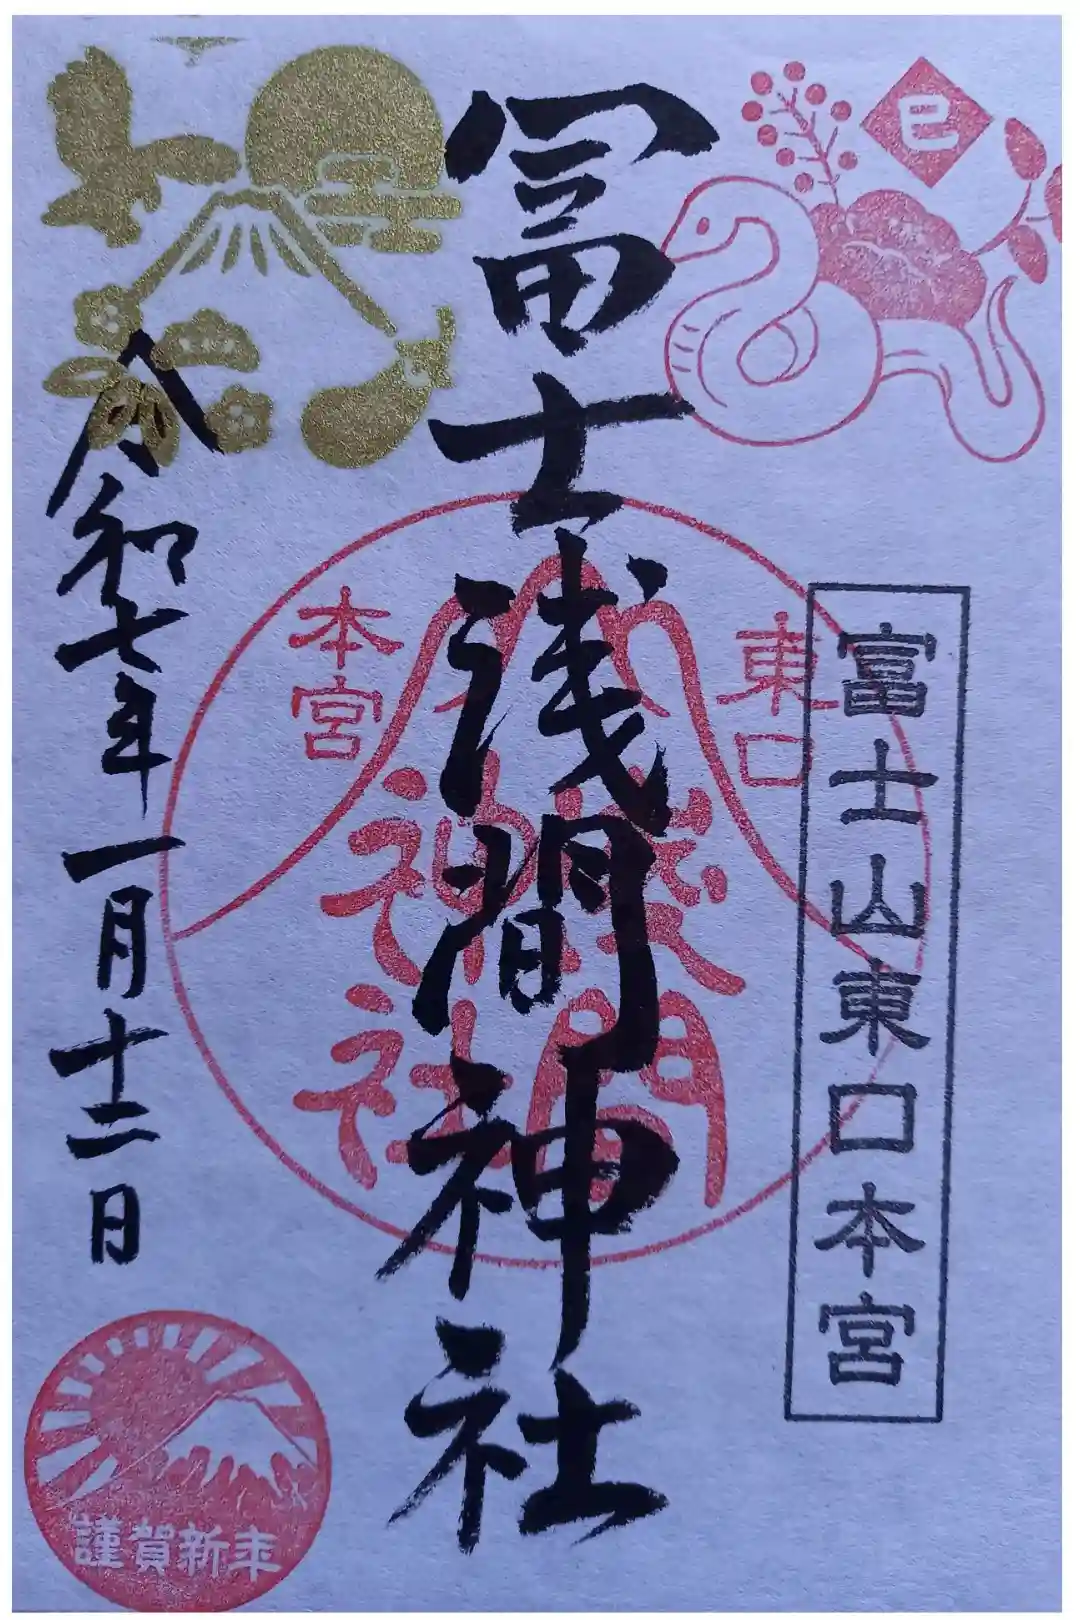 巳
富士山東口本宮
冨士浅間神社
東口
本宮
浅間
神社
令和七年一月十二日
謹賀新年